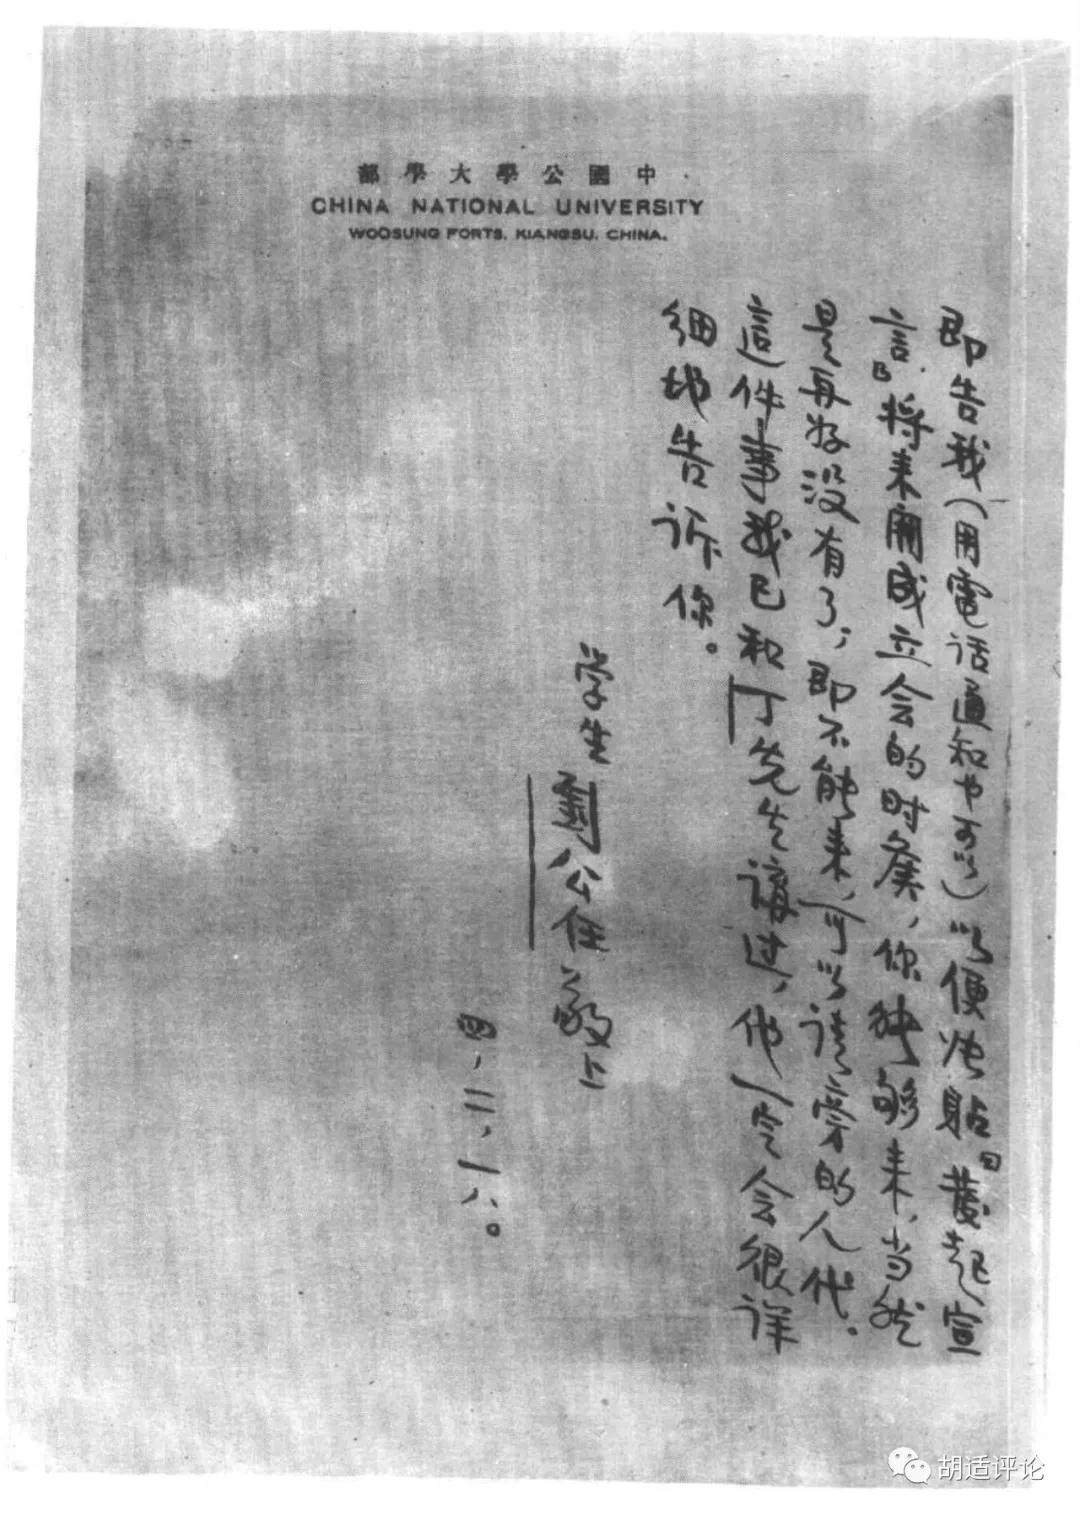 中國公學大學部
CHINA NATIONAL UNIVERSITY
WOOSUNG FORTS, KIANGSU, CHINA.
即告我（用電话通知也可以）以便张贴『發起宣
言』将来開成立会的时候，你能够来，当然
是再好没有了；即不能来，可以请旁的人代。
這件事我已和丁先生講过，他一定会很详
细地告诉你。
学生劉公任敬上
四，二，一八。
胡适评论